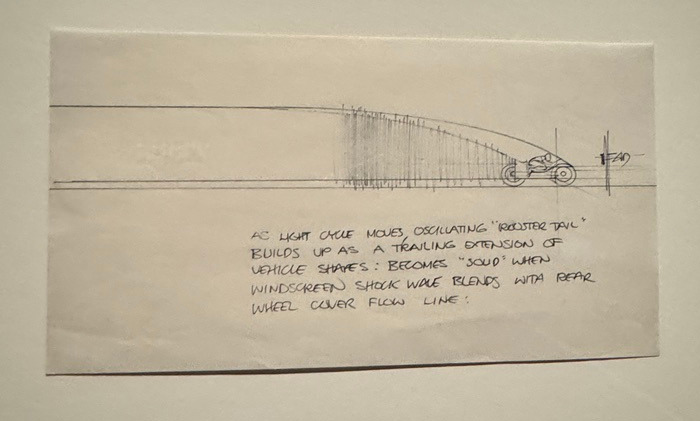 AS LIGHT CYCLE MOVES, OSCILLATING "ROOSTER TAIL"
BUILDS UP AS A TRAILING EXTENSION OF
VEHICLE SHAPES: BECOMES "SOLID" WHEN
WINDSCREEN SHOCK WAVE BLENDS WITH REAR
WHEEL COVER FLOW LINE: